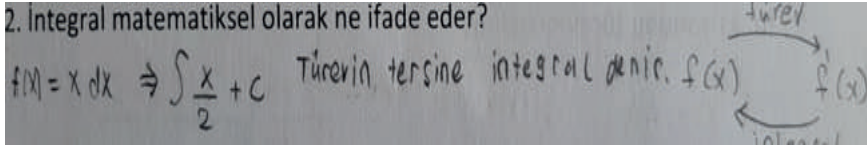 2. İntegral matematiksel olarak ne ifade eder?
türev
f(x) = x dx ⇒ ∫ x/2 + c Türevin tersine integral denir. f(x) f'(x)
integral